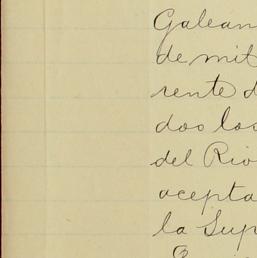 Galean
de mit
rente d
dos los
del Rio
acepta
la Sup